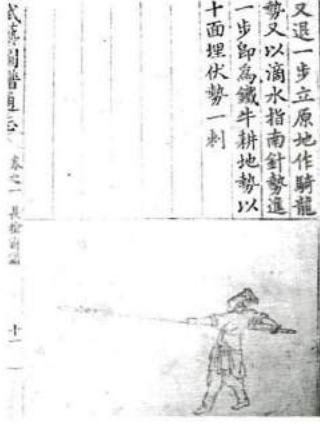 又退一步立原地作騎龍
勢又以滴水指南針勢進
一步即爲鐵牛耕地勢以
十面埋伏勢一刺
武藝圖譜通志 卷之一 長槍前譜 十一